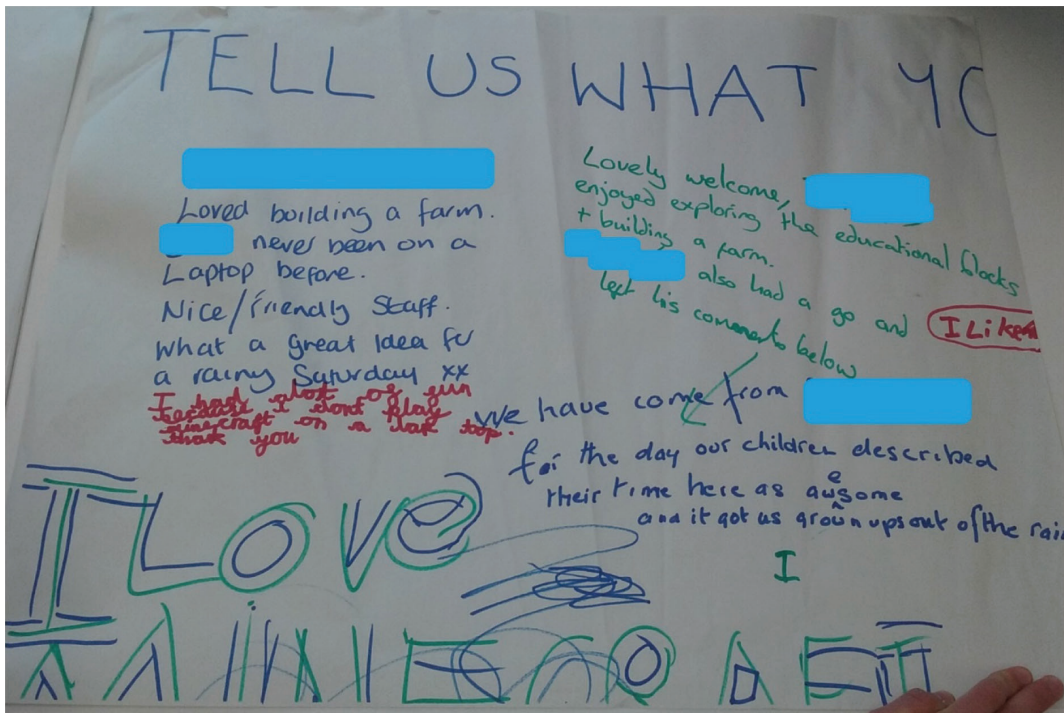 TELL US WHAT YO
Loved building a farm.
never been on a
Laptop before.
Nice/friendly Staff.
What a great Idea for
a rainy Saturday xx
I had alot of fun
because I dont play
minecraft on a lap top.
thank you
Lovely welcome,
enjoyed exploring the educational blocks
+ building a farm.
also had a go and
left his comments below
I Like
We have come from
for the day our children described
their time here as awesome
and it got us grown ups out of the rain
I
I LOVE
MINECRAFT